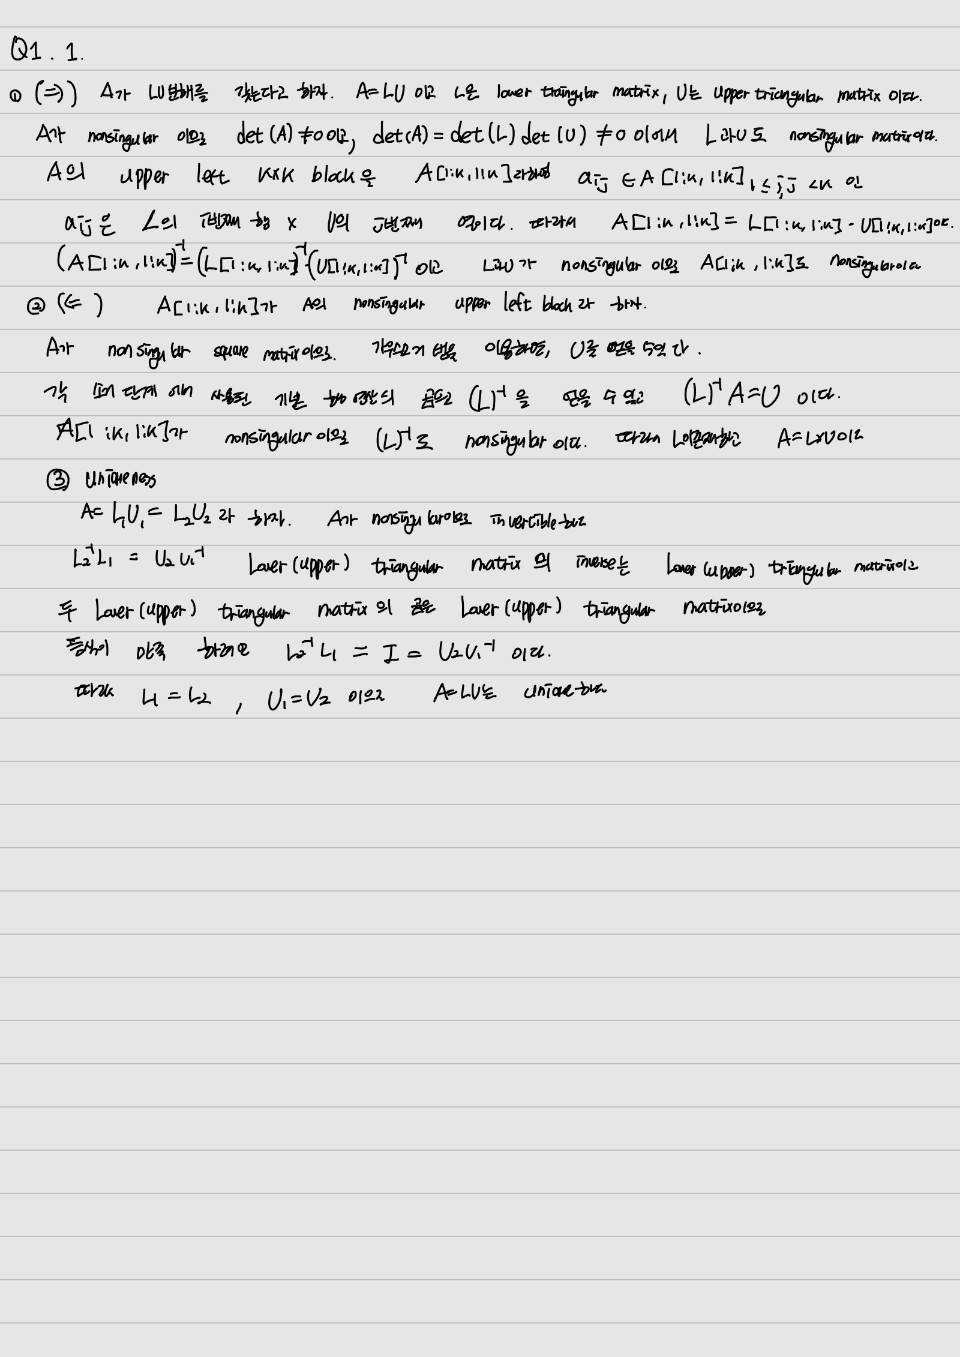 Q1. 1.
① (⇒) A가 LU분해를 갖는다고 하자. A=LU 이고 L은 lower triangular matrix, U는 upper triangular matrix 이다.
A가 nonsingular 이므로 det(A)≠0 이고, det(A) = det(L) det(U) ≠0 이어서 L과U도 nonsingular matrix이다.
A의 upper left K×K block을 A[1:k, 1:k]라하면 aij ∈ A[1:k, 1:k] 1≤i,j<k 인
aij 은 L의 i번째 행 × U의 j번째 열이다. 따라서 A[1:k, 1:k] = L[1:k, 1:k] · U[1:k, 1:k]이다.
(A[1:k, 1:k])⁻¹ = (L[1:k, 1:k])⁻¹ · (U[1:k, 1:k])⁻¹ 이고 L과U가 nonsingular 이므로 A[1:k, 1:k]도 nonsingular이다
② (⇐) A[1:k, 1:k]가 A의 nonsingular upper left block 라 하자.
A가 nonsingular square matrix이므로. 가우스소거법을 이용하면, U를 얻을 수있다.
각 소거 단계에서 사용된 기본 행 연산의 곱으로 (L)⁻¹을 얻을 수 있고 (L)⁻¹A=U 이다.
A[1:k, 1:k]가 nonsingular 이므로 (L)⁻¹도 nonsingular 이다. 따라서 L이존재하고 A=L×U이다
③ Uniqueness
A= L₁U₁ = L₂U₂ 라 하자. A가 nonsingular이므로 invertible하고
L₂⁻¹L₁ = U₂U₁⁻¹ Lower(upper) triangular matrix 의 inverse는 Lower(upper) triangular matrix이고
두 Lower(upper) triangular matrix의 곱은 Lower(upper) triangular matrix이므로
등식이 만족 하려면 L₂⁻¹L₁ = I = U₂U₁⁻¹ 이다.
따라서 L₁ = L₂ , U₁ = U₂ 이므로 A=LU는 unique하다